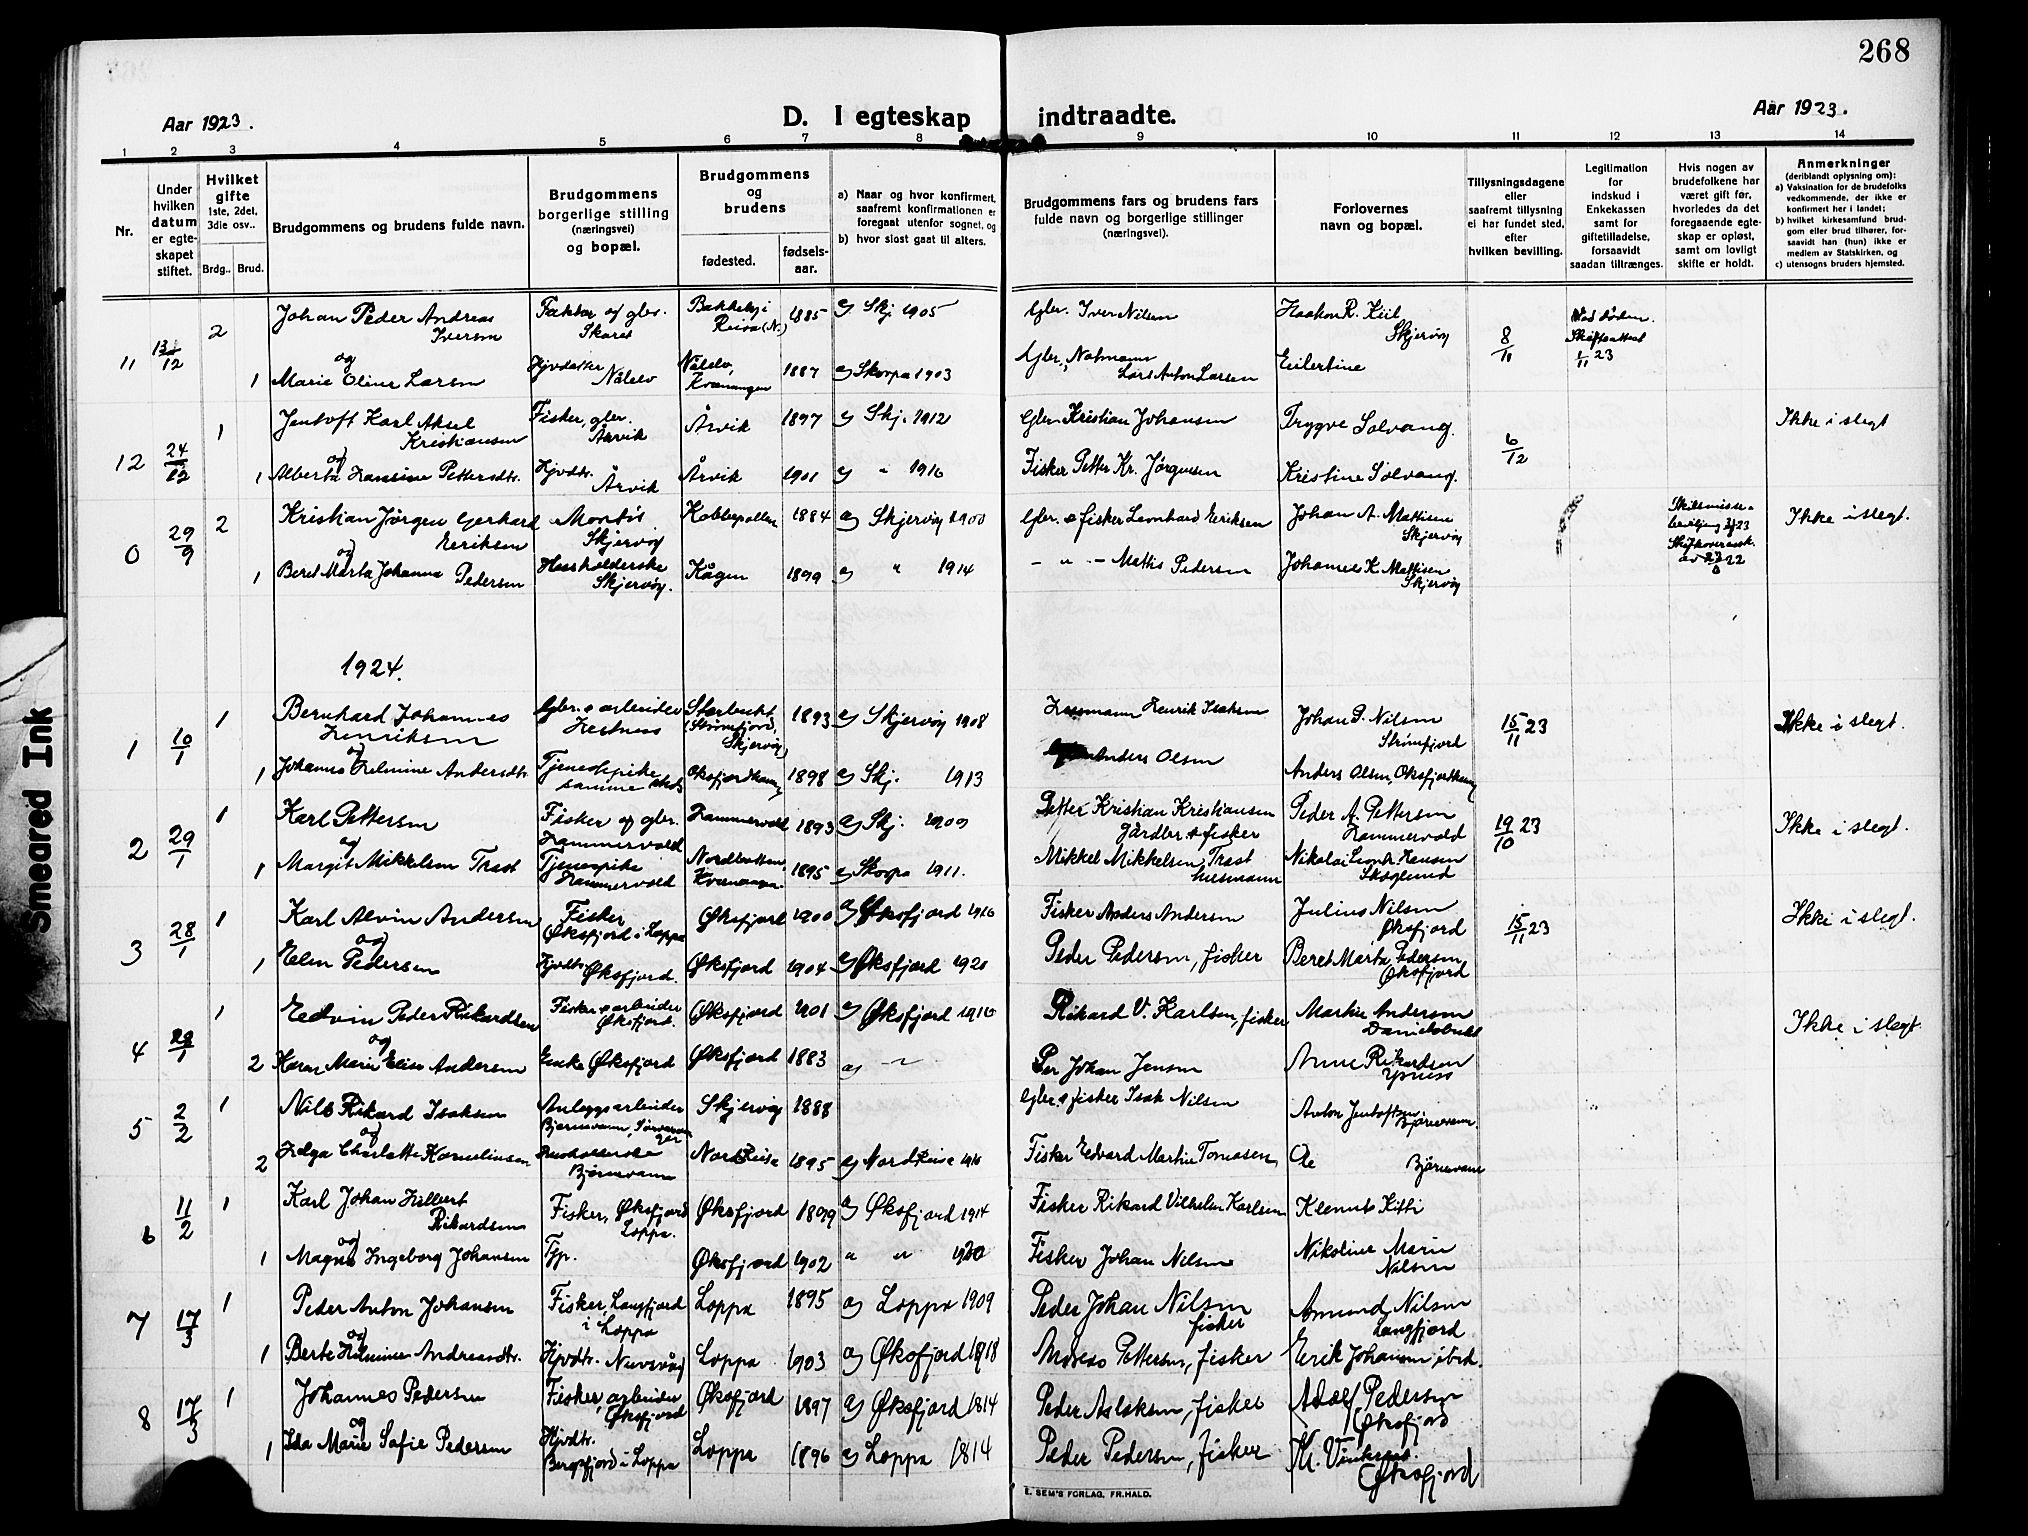 268
Aar 1923.
D. I egteskap indtraadte.
Aar 1923.
1 2 3 4 5 6 7 8 9 10 11 12 13 14
Nr.
Under hvilken datum er egteskapet stiftet.
Hvilket gifte 1ste, 2det, 3die osv..
Brdg.. Brud.
Brudgommens og brudens fulde navn.
Brudgommens borgerlige stilling (næringsvei) og bopæl.
Brudgommens og brudens
fødested.
fødsels-aar.
a) Naar og hvor konfirmert, saafremt konfirmationen er foregaat utenfor sognet, og
b) hvor sidst gaat til alters.
Brudgommens fars og brudens fars fulde navn og borgerlige stillinger (næringsvei).
Forlovernes navn og bopæl.
Tillysningsdagene eller saafremt tillysning ei har fundet sted, efter hvilken bevilling.
Legitimation for indskud i Enkekassen samt for giftetilladelse, forsaavidt saadan tiltrænges.
Hvis nogen av brudefolkene har været gift før, hvorledes da det foregaaende egteskap er opløst, samt om lovligt skifte er holdt.
Anmerkninger (deriblandt oplysning om): a) Vaksination for de brudefolks vedkommende, der ikke er konfirmert her i landet; b) hvilket kirkesamfund brudgom eller brud tilhører, forsaavidt han (hun) ikke er medlem av Statskirken, og c) utensogns bruders hjemsted.
11 2 Johan Peder Andreas Iversen 1885 a) Skj. 1905 Gbr. Iver Nilsen Haakon R. Kiil Skjervøy 8/11
og
1 Marie Eline Larsen Nålelv Nålelv, Kvænangen 1887 a) Skorpa 1903 Lars Anton Larsen Eilertine
12 24/12 1 Jentoft Karl Aksel Kristiansen Fisker, gbr. Årvik Årvik 1897 a) Skj. 1912 Gbr. Kristian Johansen Trygve Solvang. 6/12 Ikke i slegt
og
1 Alberta Hansine Pettersdtr. Hjvdtr. Årvik Årvik 1901 a) " 1916 Fisker Petter Kr. Jørgensen Kristine Solvang.
0 29/9 2 Kristian Jørgen Gerhard Eriksen Skjervøy Kobbepollen 1884 a) Skjervøy 1900 Gbr. & fisker Leonhard Eriksen Johan A. Mattisen Skjervøy Ikke i slegt.
og
1 Beret Marta Johanna Pedersen Husholderske Skjervøy. Kågen 1899 a) " 1914 - " - Mathis Pedersen Johannes K. Mattisen Skjervøy
1924.
1 10/1 1 Bernhard Johannes Henriksen Gbr. & arbeider Hestnes (Strømfjord, Skjervøy) 1893 a) Skjervøy 1908 Henrik Isaksen Johan P. Nilsen Strømfjord 15/11 23 Ikke i slegt.
og
1 Johanne Helmine Andersdtr. Tjenestepike samme sted 1898 a) Skj. 1913 Anders Olsen Anders Olsen,
2 29/1 1 Karl Pettersen Fisker og gbr. Hammervold Hammervold 1893 a) Skj. 1909 Petter Kristian Kristiansen gårdbr. & fisker Peder A. Pettersen Hammervold 19/10 23 Ikke i slegt.
og
1 Margit Mikkelsen Trast Tjenestepike Hammervold Nordbotten, Kvænangen 1895 a) Skorpa 1911. Mikkel Mikkelsen Trast husmann Nikolai Leonh. Hansen Skoglund
3 28/1 1 Karl Alvin Andersen Fisker Øksfjord i Loppa Øksfjord 1900 a) Øksfjord 1916 Fisker Anders Andersen Julius Nilsen Øksfjord 15/11 23 Ikke i slegt.
og
1 Elen Pedersen Hjvdtr. Øksfjord. Øksfjord 1904 a) Øksfjord 1920 Peder Pedersen, fisker Beret Marta Pedersen Øksfjord
4 1 Edvin Peder Rikardsen Fisker & arbeider Øksfjord. Øksfjord 1901 a) Øksfjord 1916 Rikard V. Karlsen, fisker Martin Andersen Ikke i slegt
og
2 Karen Marie Elise Andersen Enke Øksfjord Øksfjord 1883 a) Per Johan Jensen Anne Rikardsen
5 2/2 1 Nils Rikard Isaksen Anlegsarbeider Bjørnevann, Sørvaranger Skjervøy 1888 Gbr. & fisker Isak Nilsen Anton Jentoftsen Bjørnevann
og
2 Helga Charlotte Korneliussen Husholderske Bjørnevann Nordreisa 1895 a) Nordreisa Fisker Edvard Martin Tomasen Bjørnevann
6 11/2 1 Karl Johan Hilbert Rikardsen Fisker, Øksfjord Loppa. Øksfjord 1899 a) Øksfjord 1914 Fisker Rikard Vilhelm Karlsen Klemet Kitti
og
1 Magna Ingeborg Johansen Tjp. Øksfjord 1902 " " 1920 Fisker Johan Nilsen Nikoline Marie Nilsen
7 17/3 1 Peder Anton Johansen Fisker, Langfjord i Loppa Loppa 1895 a) Loppa 1909 Peder Johan Nilsen fisker Amund Nilsen Langfjord
og
1 Berte Helmine Andreasdtr. Hjvdtr. Nuvsvåg Loppa 1903 a) Øksfjord 1918 Andreas Pettersen, fisker Erik Johansen ibd.
8 17/3 1 Johannes Pedersen Fisker, arbeider Øksfjord Øksfjord 1897 a) Øksfjord 1814 Peder Aslaksen, fisker Adolf Pedersen Øksfjord
og
1 Ida Marie Sofie Pedersen Hjvdtr. Bergsfjord i Loppa Loppa 1896 a) Loppa 1814 Peder Pedersen, fisker Øksfjord
E. SEM'S FORLAG, FR.HALD.
Smeared Ink